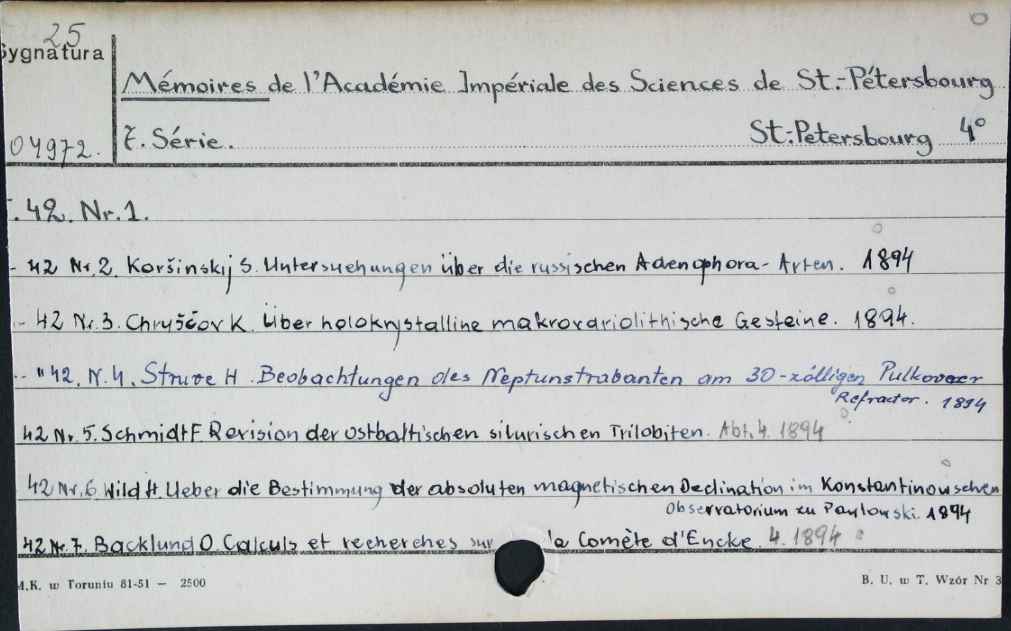 25
Sygnatura
Mémoires de l'Académie Impériale des Sciences de St.-Pétersbourg
04972. 7. Série. St:Petersbourg 4°
.42. Nr.1.
- 42 Nr.2. Koršinskij S. Untersuchungen über die russischen Adenophora-Arten. 1894
- 42 Nr.3. Chryščov K. Über holokrystalline makrovariolithische Gesteine. 1894.
- "42. N.4. Struve H. Beobachtungen des Neptunstrabanten am 30-zölligen Pulkovaer
Refractor. 1894
42 Nr.5. Schmidt F Revision der ostbaltischen silurischen Trilobiten. Abt.4. 1894
42 Nr.6 Wild H. Ueber die Bestimmung der absoluten magnetischen Declination im Konstantinowschen
Observatorium zu Pawlowski. 1894
42 Nr.7. Backlund O Calculs et recherches sur la Comète d'Encke. 4. 1894
M.K. w Toruniu 81-51 — 2500 B. U. w T. Wzór Nr 3